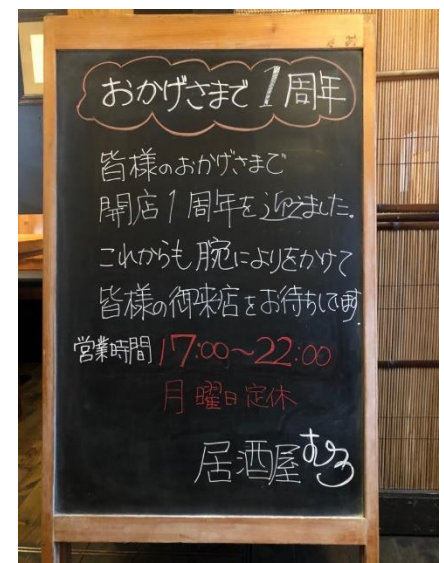 おかげさまで1周年
皆様のおかげさまで
開店1周年を迎えました。
これからも腕によりをかけて
皆様の御来店をお待ちしてます。
営業時間 17:00～22:00
月曜日定休
居酒屋むろ